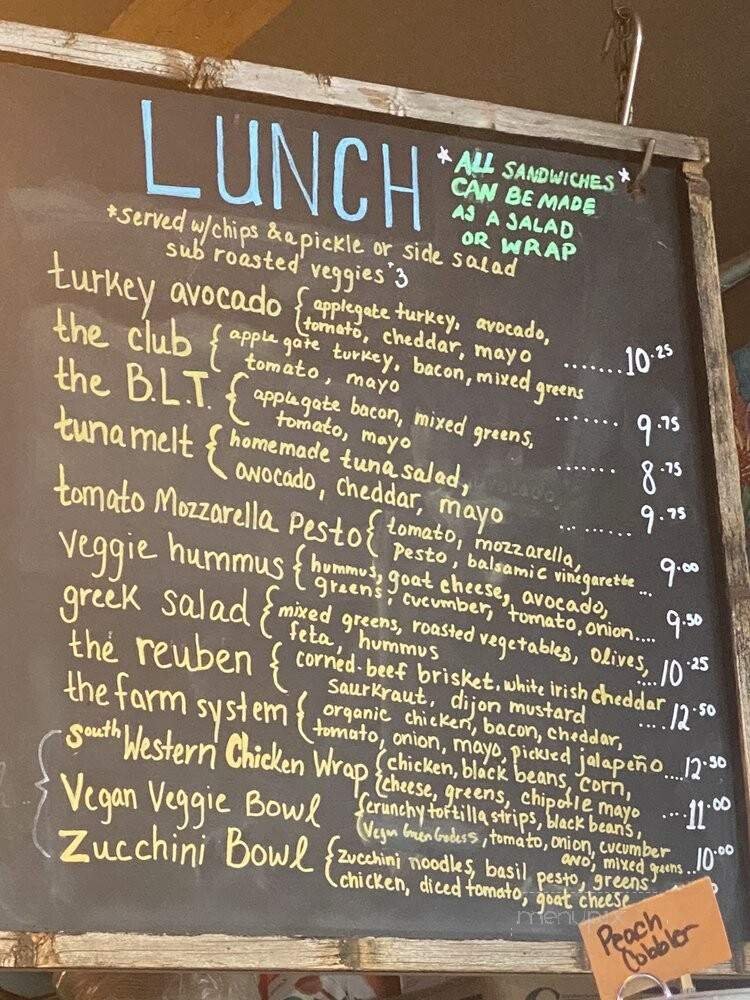 LUNCH
*ALL SANDWICHES*
CAN BE MADE
AS A SALAD
OR WRAP
*served w/chips & a pickle or side salad
sub roasted veggies $3
turkey avocado { applegate turkey, avocado,
tomato, cheddar, mayo ....... 10.25
the club { applegate turkey, bacon, mixed greens
tomato, mayo ....... 9.75
the B.L.T. { applegate bacon, mixed greens,
tomato, mayo ....... 8.75
tuna melt { homemade tuna salad,
avocado, cheddar, mayo ......... 9.75
tomato Mozzarella Pesto { tomato, mozzarella,
Pesto, balsamic vinegarette ... 9.00
veggie hummus { hummus, goat cheese, avocado,
greens, cucumber, tomato, onion.... 9.50
greek salad { mixed greens, roasted vegetables, olives,
feta, hummus ....10.25
the reuben { corned-beef brisket, white irish cheddar
saurkraut, dijon mustard ....12.50
the farm system { organic chicken, bacon, cheddar,
tomato, onion, mayo, pickled jalapeño....12.50
southWestern Chicken Wrap { chicken, black beans, corn,
cheese, greens, chipotle mayo ....11.00
Vegan Veggie Bowl { crunchy tortilla strips, black beans,
(Vegan Green Godess, tomato, onion, cucumber
avo, mixed greens..10.00
Zucchini Bowl { zucchini noodles, basil pesto, greens
chicken, diced tomato, goat cheese
Peach
Cobbler
menupix